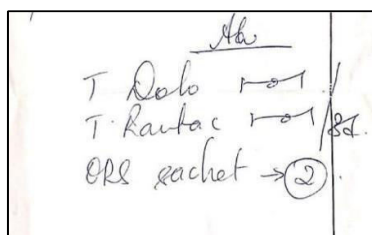 T Dolo 1-0-1
T. Rantac 1-0-1 / 3d.
ORS sachet → 2.